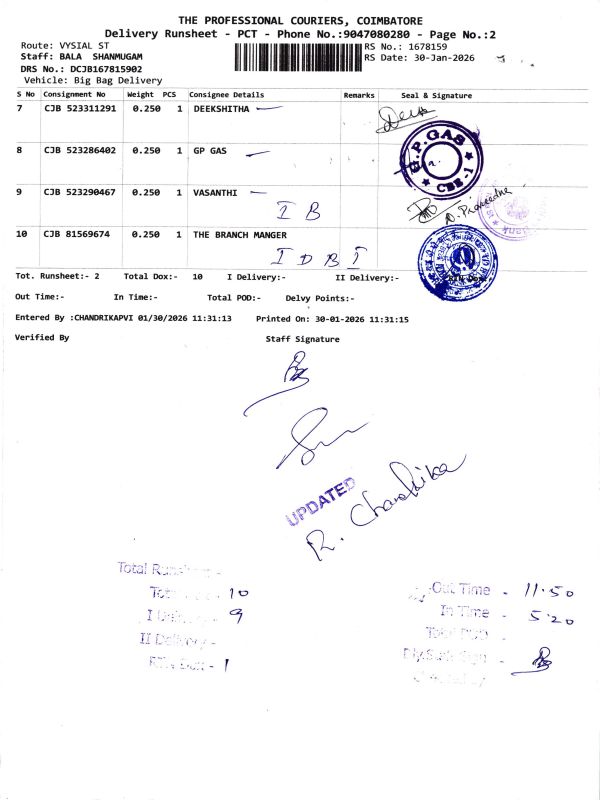 THE PROFESSIONAL COURIERS, COIMBATORE
Delivery Runsheet - PCT - Phone No.:9047080280 - Page No.:2
Route: VYSIAL ST
RS No.: 1678159
Staff: BALA SHANMUGAM
RS Date: 30-Jan-2026
DRS No.: DCJB167815902
Vehicle: Big Bag Delivery
S No Consignment No Weight PCS Consignee Details Remarks Seal & Signature
7 CJB 523311291 0.250 1 DEEKSHITHA
8 CJB 523286402 0.250 1 GP GAS
G.P. GAS
CBE-1
9 CJB 523290467 0.250 1 VASANTHI
I B
10 CJB 81569674 0.250 1 THE BRANCH MANGER
I D B I
Tot. Runsheet:- 2 Total Dox:- 10 I Delivery:- II Delivery:-
Out Time:- In Time:- Total POD:- Delvy Points:-
Entered By :CHANDRIKAPVI 01/30/2026 11:31:13 Printed On: 30-01-2026 11:31:15
Verified By Staff Signature
UPDATED
R. Chandrika
Total
10
9
II Delivery -
1
Out Time - 11.50
In Time - 5.20
Total